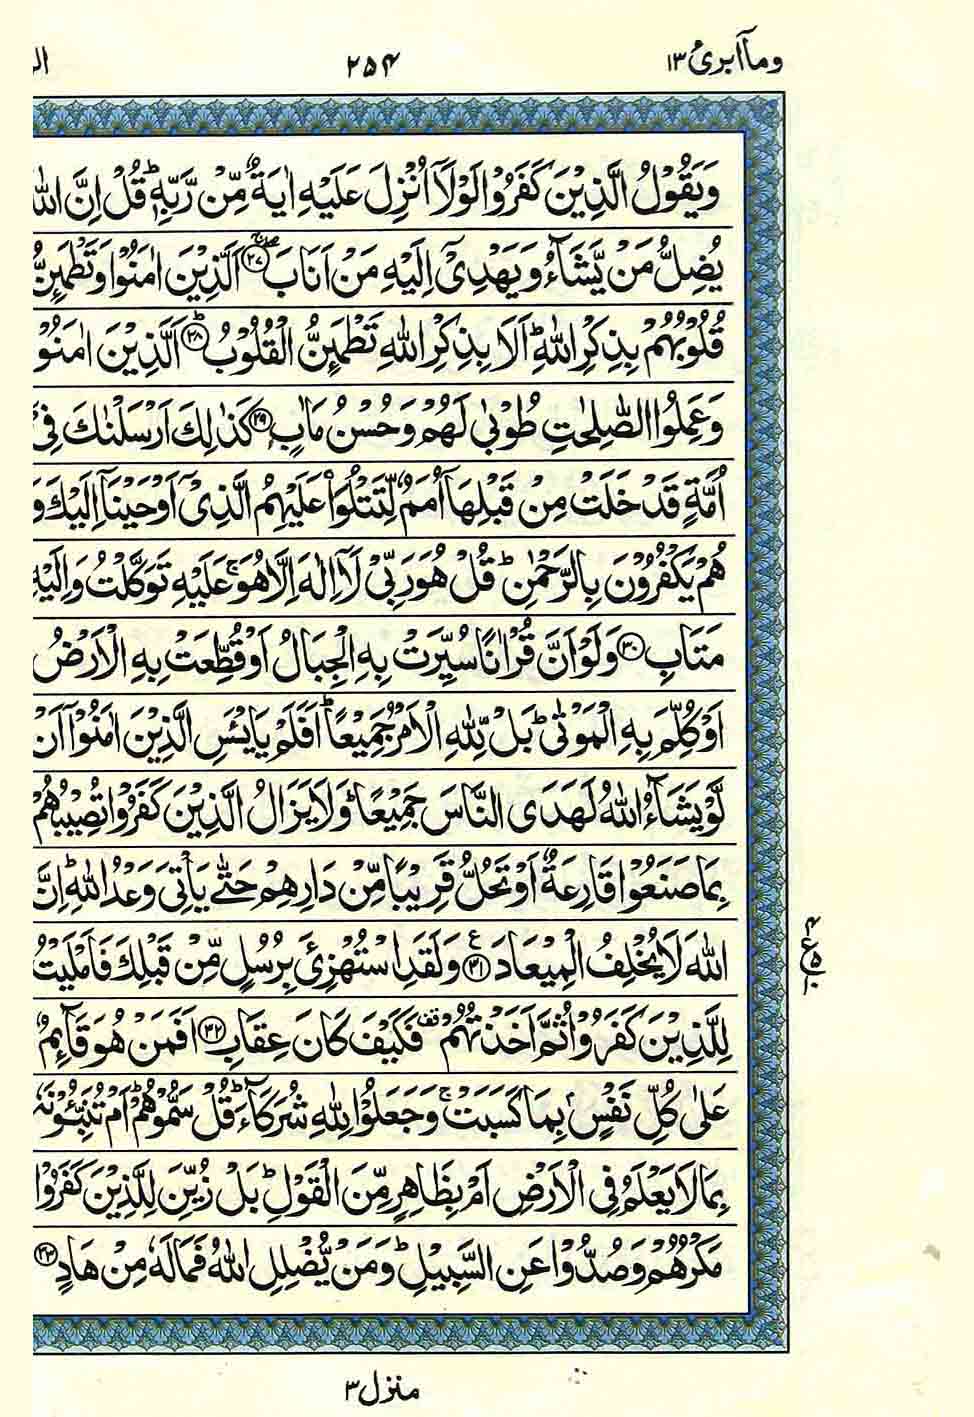 وماۤ ابرئ ١٣
٢٥٤
وَيَقُوْلُ الَّذِيْنَ كَفَرُوْا لَوْلَاۤ اُنْزِلَ عَلَيْهِ اٰيَةٌ مِّنْ رَّبِّهٖ ؕ قُلْ اِنَّ اللّٰهَ
يُضِلُّ مَنْ يَّشَآءُ وَيَهْدِىْۤ اِلَيْهِ مَنْ اَنَابَ ۖۚ‏﴿۲۷﴾ اَلَّذِيْنَ اٰمَنُوْا وَتَطْمَئِنُّ
قُلُوْبُهُمْ بِذِكْرِ اللّٰهِ ؕ اَلَا بِذِكْرِ اللّٰهِ تَطْمَئِنُّ الْقُلُوْبُ ؕ‏﴿۲۸﴾ اَلَّذِيْنَ اٰمَنُوْا
وَعَمِلُوا الصّٰلِحٰتِ طُوْبٰى لَهُمْ وَحُسْنُ مَاٰبٍ‏﴿۲۹﴾ كَذٰلِكَ اَرْسَلْنٰكَ فِىْۤ
اُمَّةٍ قَدْ خَلَتْ مِنْ قَبْلِهَاۤ اُمَمٌ لِّتَتْلُوَا۟ عَلَيْهِمُ الَّذِىْۤ اَوْحَيْنَاۤ اِلَيْكَ وَ
هُمْ يَكْفُرُوْنَ بِالرَّحْمٰنِ ؕ قُلْ هُوَ رَبِّىْ لَاۤ اِلٰهَ اِلَّا هُوَ ۚ عَلَيْهِ تَوَكَّلْتُ وَاِلَيْهِ
مَتَابِ‏﴿۳۰﴾ وَلَوْ اَنَّ قُرْاٰنًا سُيِّرَتْ بِهِ الْجِبَالُ اَوْ قُطِّعَتْ بِهِ الْاَرْضُ
اَوْ كُلِّمَ بِهِ الْمَوْتٰى ؕ بَلْ لِّلّٰهِ الْاَمْرُ جَمِيْعًا ؕ اَفَلَمْ يَايْـَٔسِ الَّذِيْنَ اٰمَنُوْۤا اَنْ
لَّوْ يَشَآءُ اللّٰهُ لَهَدَى النَّاسَ جَمِيْعًا ؕ وَلَا يَزَالُ الَّذِيْنَ كَفَرُوْا تُصِيْبُهُمْ
بِمَا صَنَعُوْا قَارِعَةٌ اَوْ تَحُلُّ قَرِيْبًا مِّنْ دَارِهِمْ حَتّٰى يَاْتِىَ وَعْدُ اللّٰهِ ؕ اِنَّ
اللّٰهَ لَا يُخْلِفُ الْمِيْعَادَ‏﴿۳۱﴾ وَلَقَدِ اسْتُهْزِئَ بِرُسُلٍ مِّنْ قَبْلِكَ فَاَمْلَيْتُ
لِلَّذِيْنَ كَفَرُوْا ثُمَّ اَخَذْتُهُمْ فَكَيْفَ كَانَ عِقَابِ‏﴿۳۲﴾ اَفَمَنْ هُوَ قَآئِمٌ
عَلٰى كُلِّ نَفْسٍۢ بِمَا كَسَبَتْ ۚ وَجَعَلُوْا لِلّٰهِ شُرَكَآءَ ؕ قُلْ سَمُّوْهُمْ ؕ اَمْ تُنَبِّـُٔوْنَهٗ
بِمَا لَا يَعْلَمُ فِى الْاَرْضِ اَمْ بِظَاهِرٍ مِّنَ الْقَوْلِ ؕ بَلْ زُيِّنَ لِلَّذِيْنَ كَفَرُوْا
مَكْرُهُمْ وَصُدُّوْا عَنِ السَّبِيْلِ ؕ وَمَنْ يُّضْلِلِ اللّٰهُ فَمَا لَهٗ مِنْ هَادٍ‏﴿۳۳﴾
منزل ٣